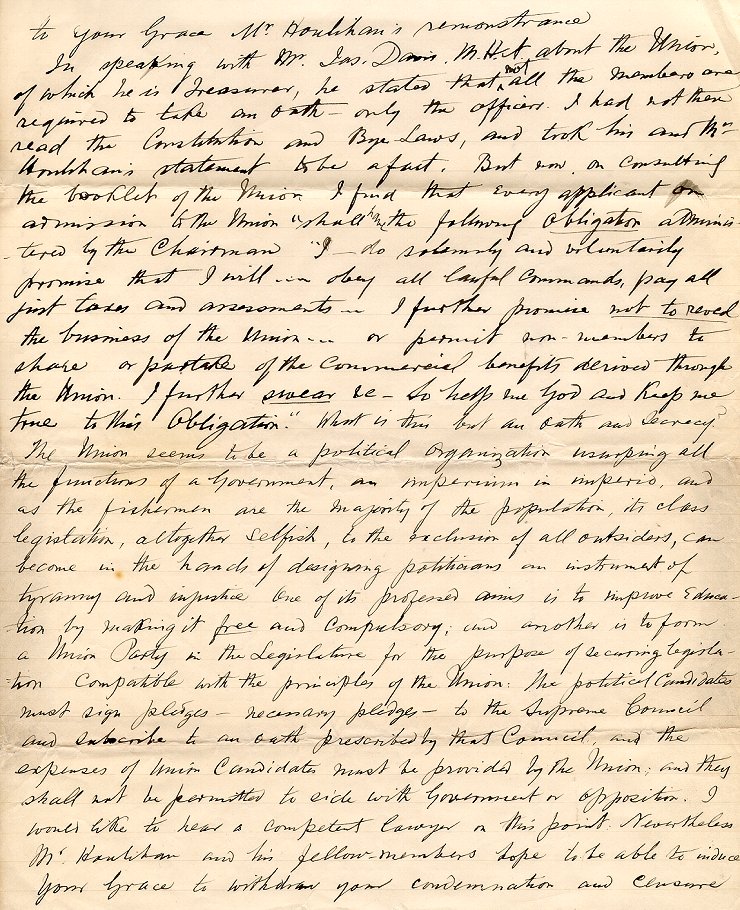 to Your Grace Mr. Houlihan's remonstrance
In speaking with Mr. Jas. Davis. M.H.A. about the Union,
of which he is Treasurer, he stated that not all the members are
required to take an oath - only the officers. I had not then
read the Constitution and Bye-Laws, and took his and Mr.
Houlihan's statement to be a fact. But now, on consulting
the booklet of the Union I find that every applicant on
admission to the Union "shall have the following obligation adminis-
-tered by the Chairman "I - do solemnly and voluntarily
promise that I will ... obey all lawful commands, pay all
just taxes and assessments ... I further promise not to reveal
the business of the Union ... or permit non-members to
share or partake of the commercial benefits derived through
the Union. I further swear &c - So help me God and keep me
true to this Obligation". What is this but an oath and secrecy?
The Union seems to be a political organization usurping all
the functions of a Government, an imperium in imperio, and
as the fishermen are the majority of the population, its class
legislation, altogether selfish, to the exclusion of all outsiders, can
become in the hands of designing politicians an instrument of
tyranny and injustice One of its professed aims is to improve Educa-
-tion by making it free and compulsory; and another is to form
a Union Party in the Legislature for the purpose of securing legisla-
-tion compatible with the principles of the Union. The political candidates
must sign pledges - necessary pledges - to the Supreme Council
and subscribe to an oath prescribed by that Council, and the
expenses of Union Candidates must be provided by the Union; and they
shall not be permitted to side with Government or opposition. I
would like to hear a competent lawyer on this point. Nevertheless
Mr. Houlihan and his fellow-members hope to be able to induce
Your Grace to withdraw your condemnation and censure